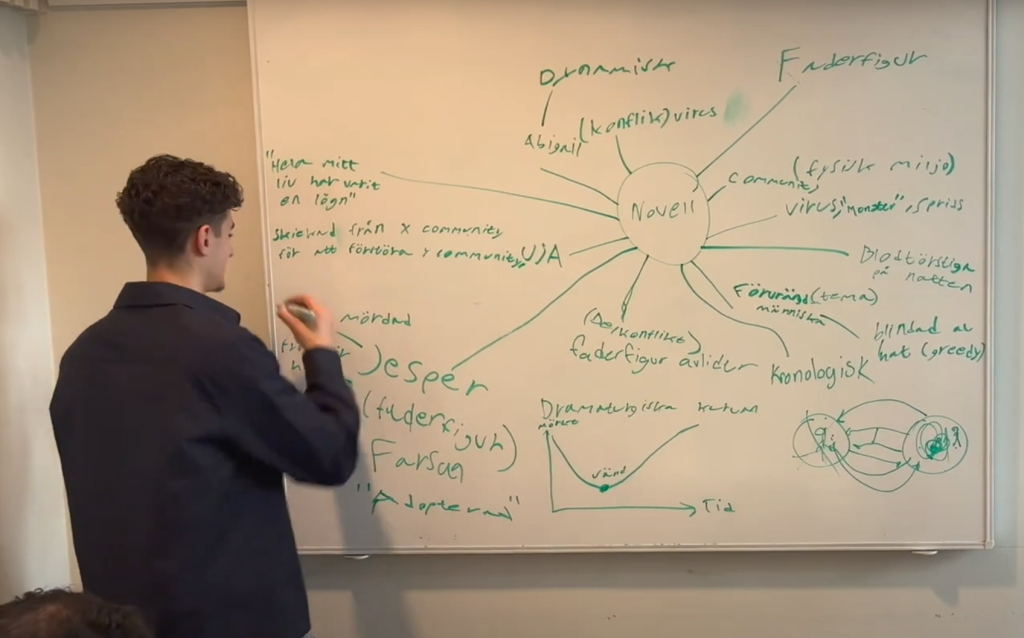 Dynamisk
Faderfigur
Abigail
(konflikt) virus
"Hela mitt
liv har varit
en lögn"
Novell
community
(fysisk miljö)
virus, "Monster", spriss
skickad från X community
för att förstöra Y community,
UJA
Blodtörstiga
på natten
Föruränd (tema)
människa
blindad av
hat (greedy)
mördad
(Den konflikt)
faderfigur avlider
Kronologisk
Jesper
(faderfigur)
Farsan
"Adopterad"
Dramaturgiska
mörker
vänd
Tid